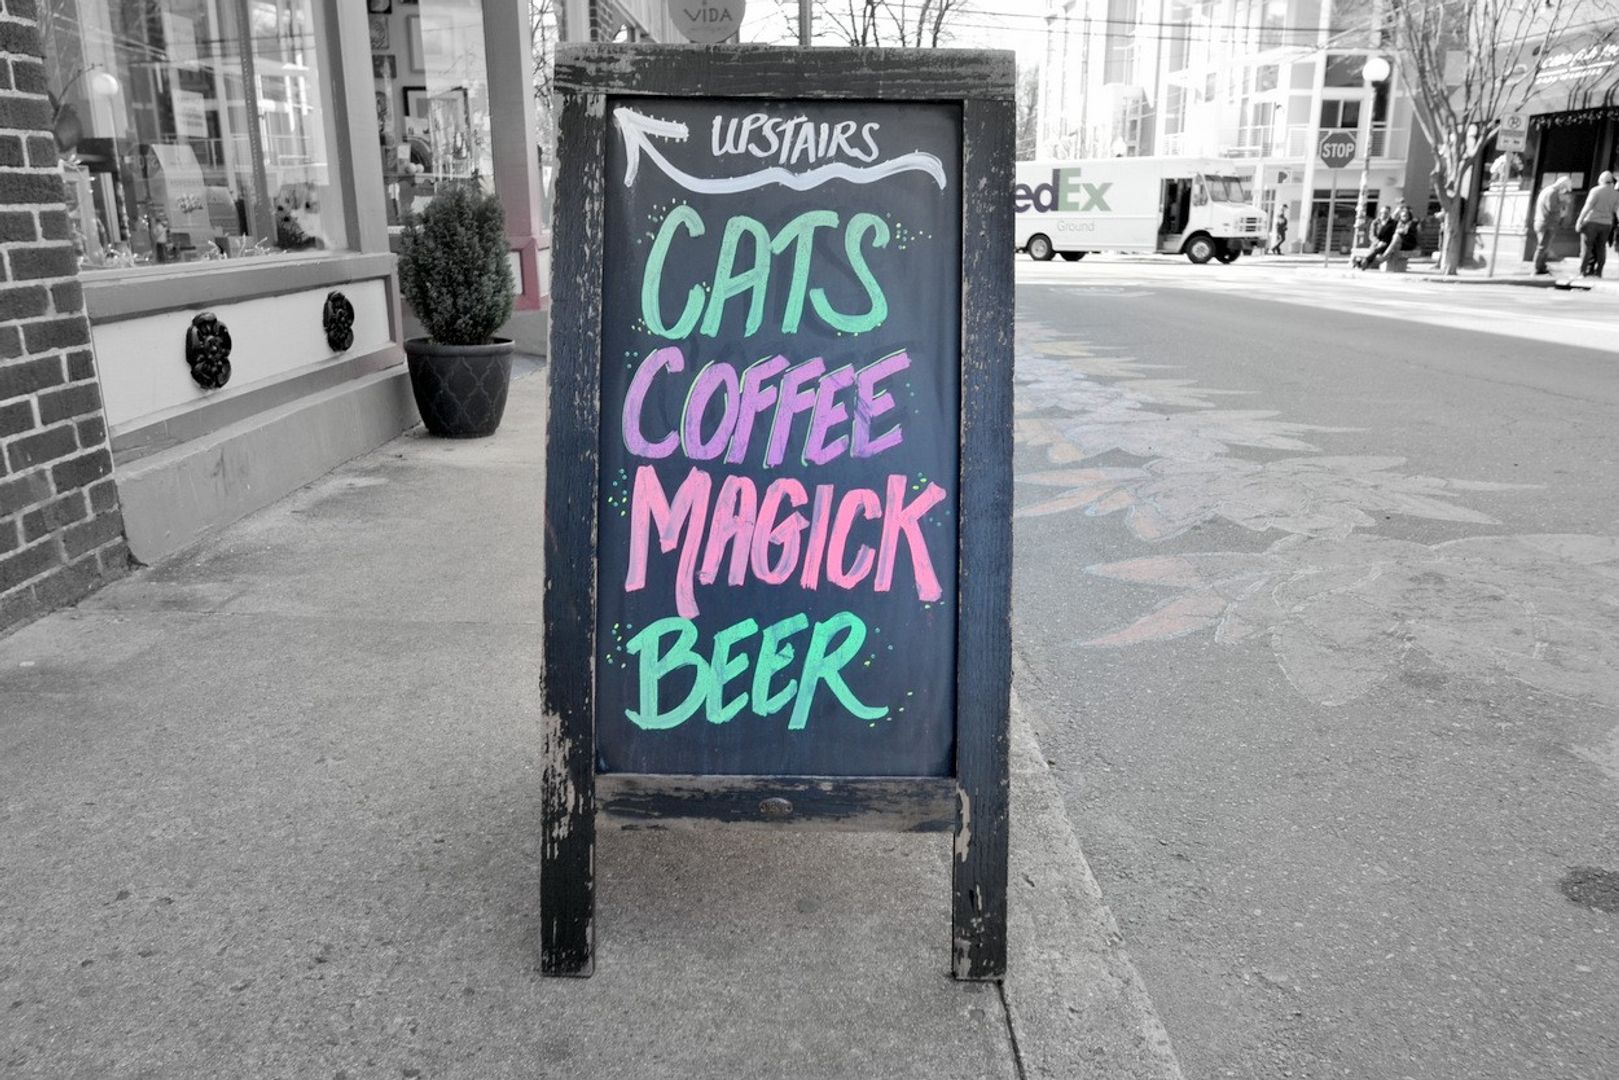 VIDA
UPSTAIRS
CATS
COFFEE
MAGICK
BEER
edEx
Ground
STOP